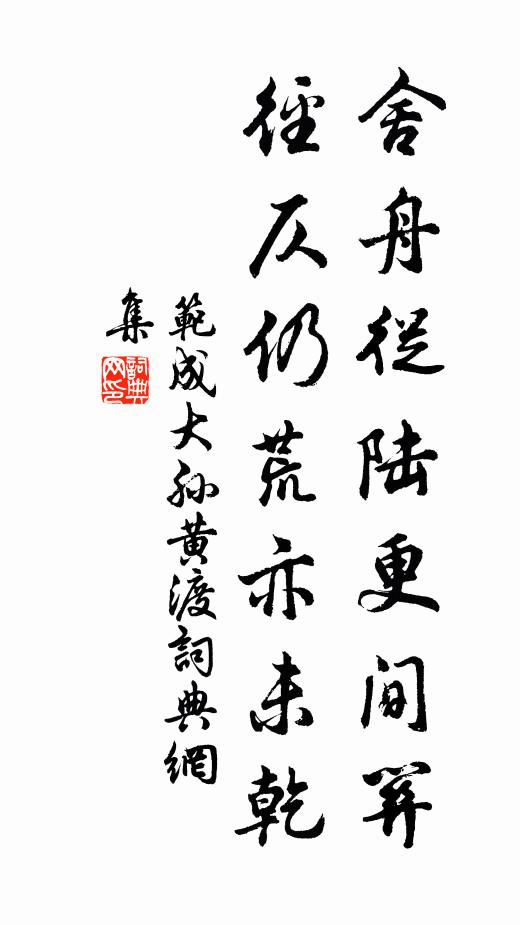 舍舟從陆更间關
徑仄仍荒亦未乾
範成大孙黄渡詞典網
集
詞典
网印